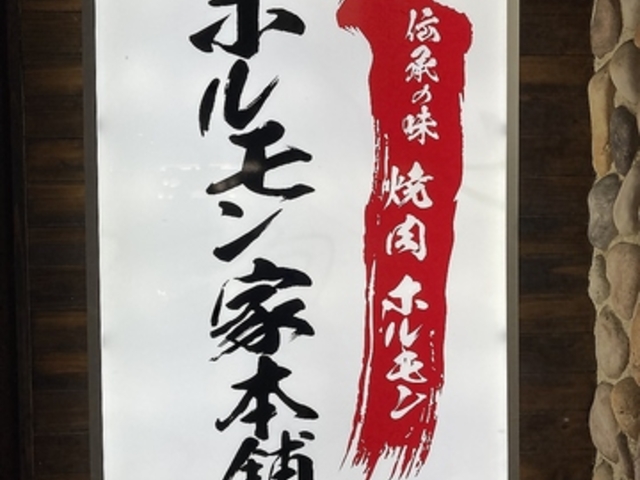 伝承の味 焼肉 ホルモン
ホルモン家本舗